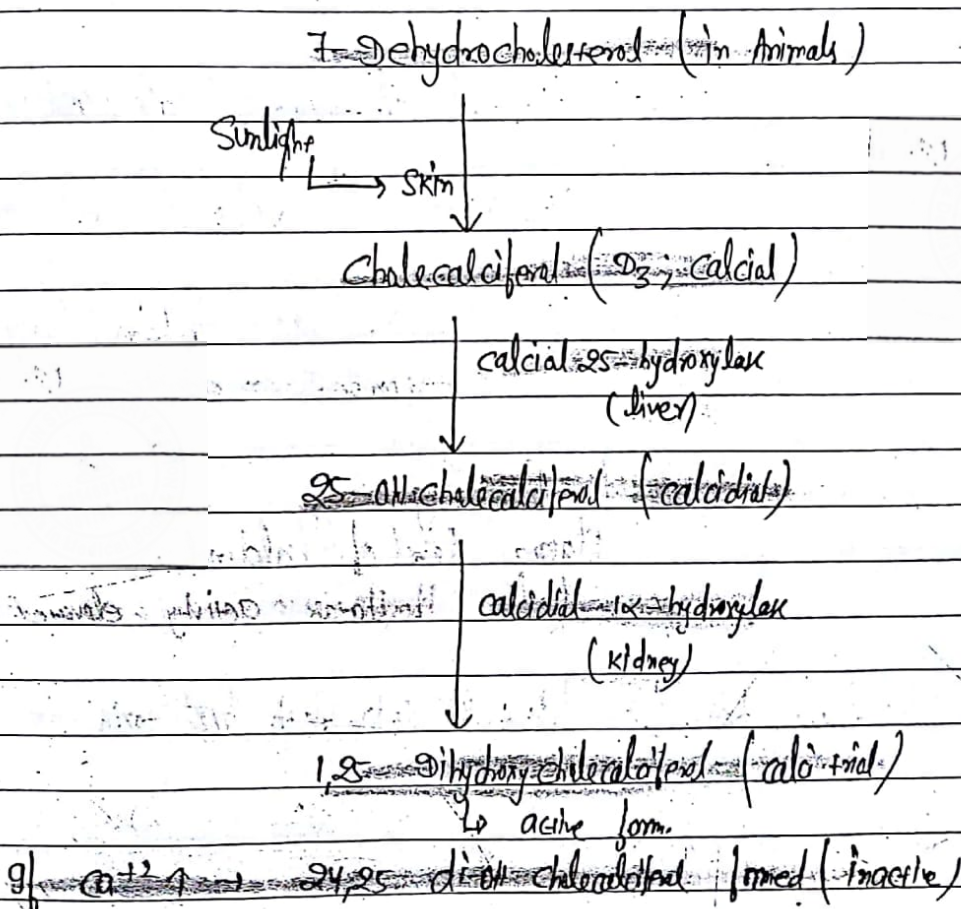 7-Dehydrocholesterol (in Animals)
Sunlight
→ Skin
Cholecalciferol (D3, Calciol)
calciol-25-hydroxylase
(liver)
25-OH-cholecalciferol (calcidiol)
calcidiol-1α-hydroxylase
(kidney)
1,25-Dihydroxycholecalciferol (calcitriol)
↳ active form.
If Ca+2 ↑ → 24,25 di-OH-cholecalciferol formed (inactive)